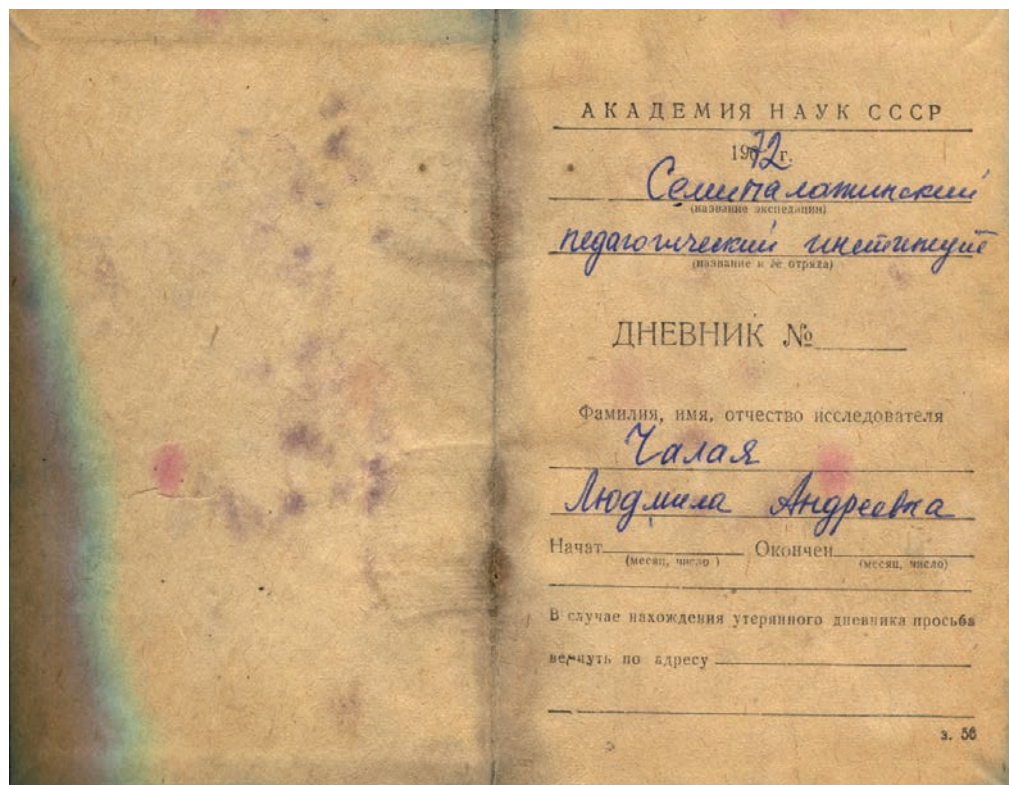 АКАДЕМИЯ НАУК СССР
1972 г.
Семипалатинский
(название экспедиции)
педагогический институт
(название и № отряда)
ДНЕВНИК №
Фамилия, имя, отчество исследователя
Чалая
Людмила Андреевна
Начат Окончен
(месяц, число) (месяц, число)
В случае нахождения утерянного дневника просьба
вернуть по адресу
з. 56